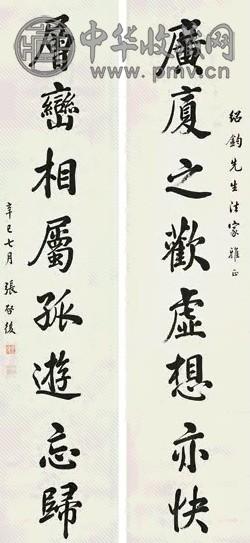 中华收藏网
www.pmv.cn
紹鈞先生法家雅正
廣廈之歡虛想亦快
層巒相屬孤遊忘歸
辛巳七月 張啓後